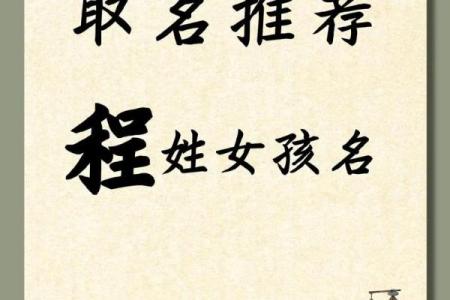 取名推荐
程姓女孩名